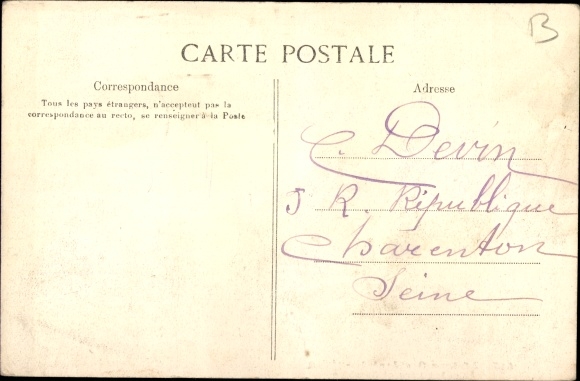 B
CARTE POSTALE
Correspondance
Tous les pays étrangers, n'acceptent pas la
correspondance au recto, se renseigner à la Poste
Adresse
C. Devin
5 R. République
Charenton
Seine